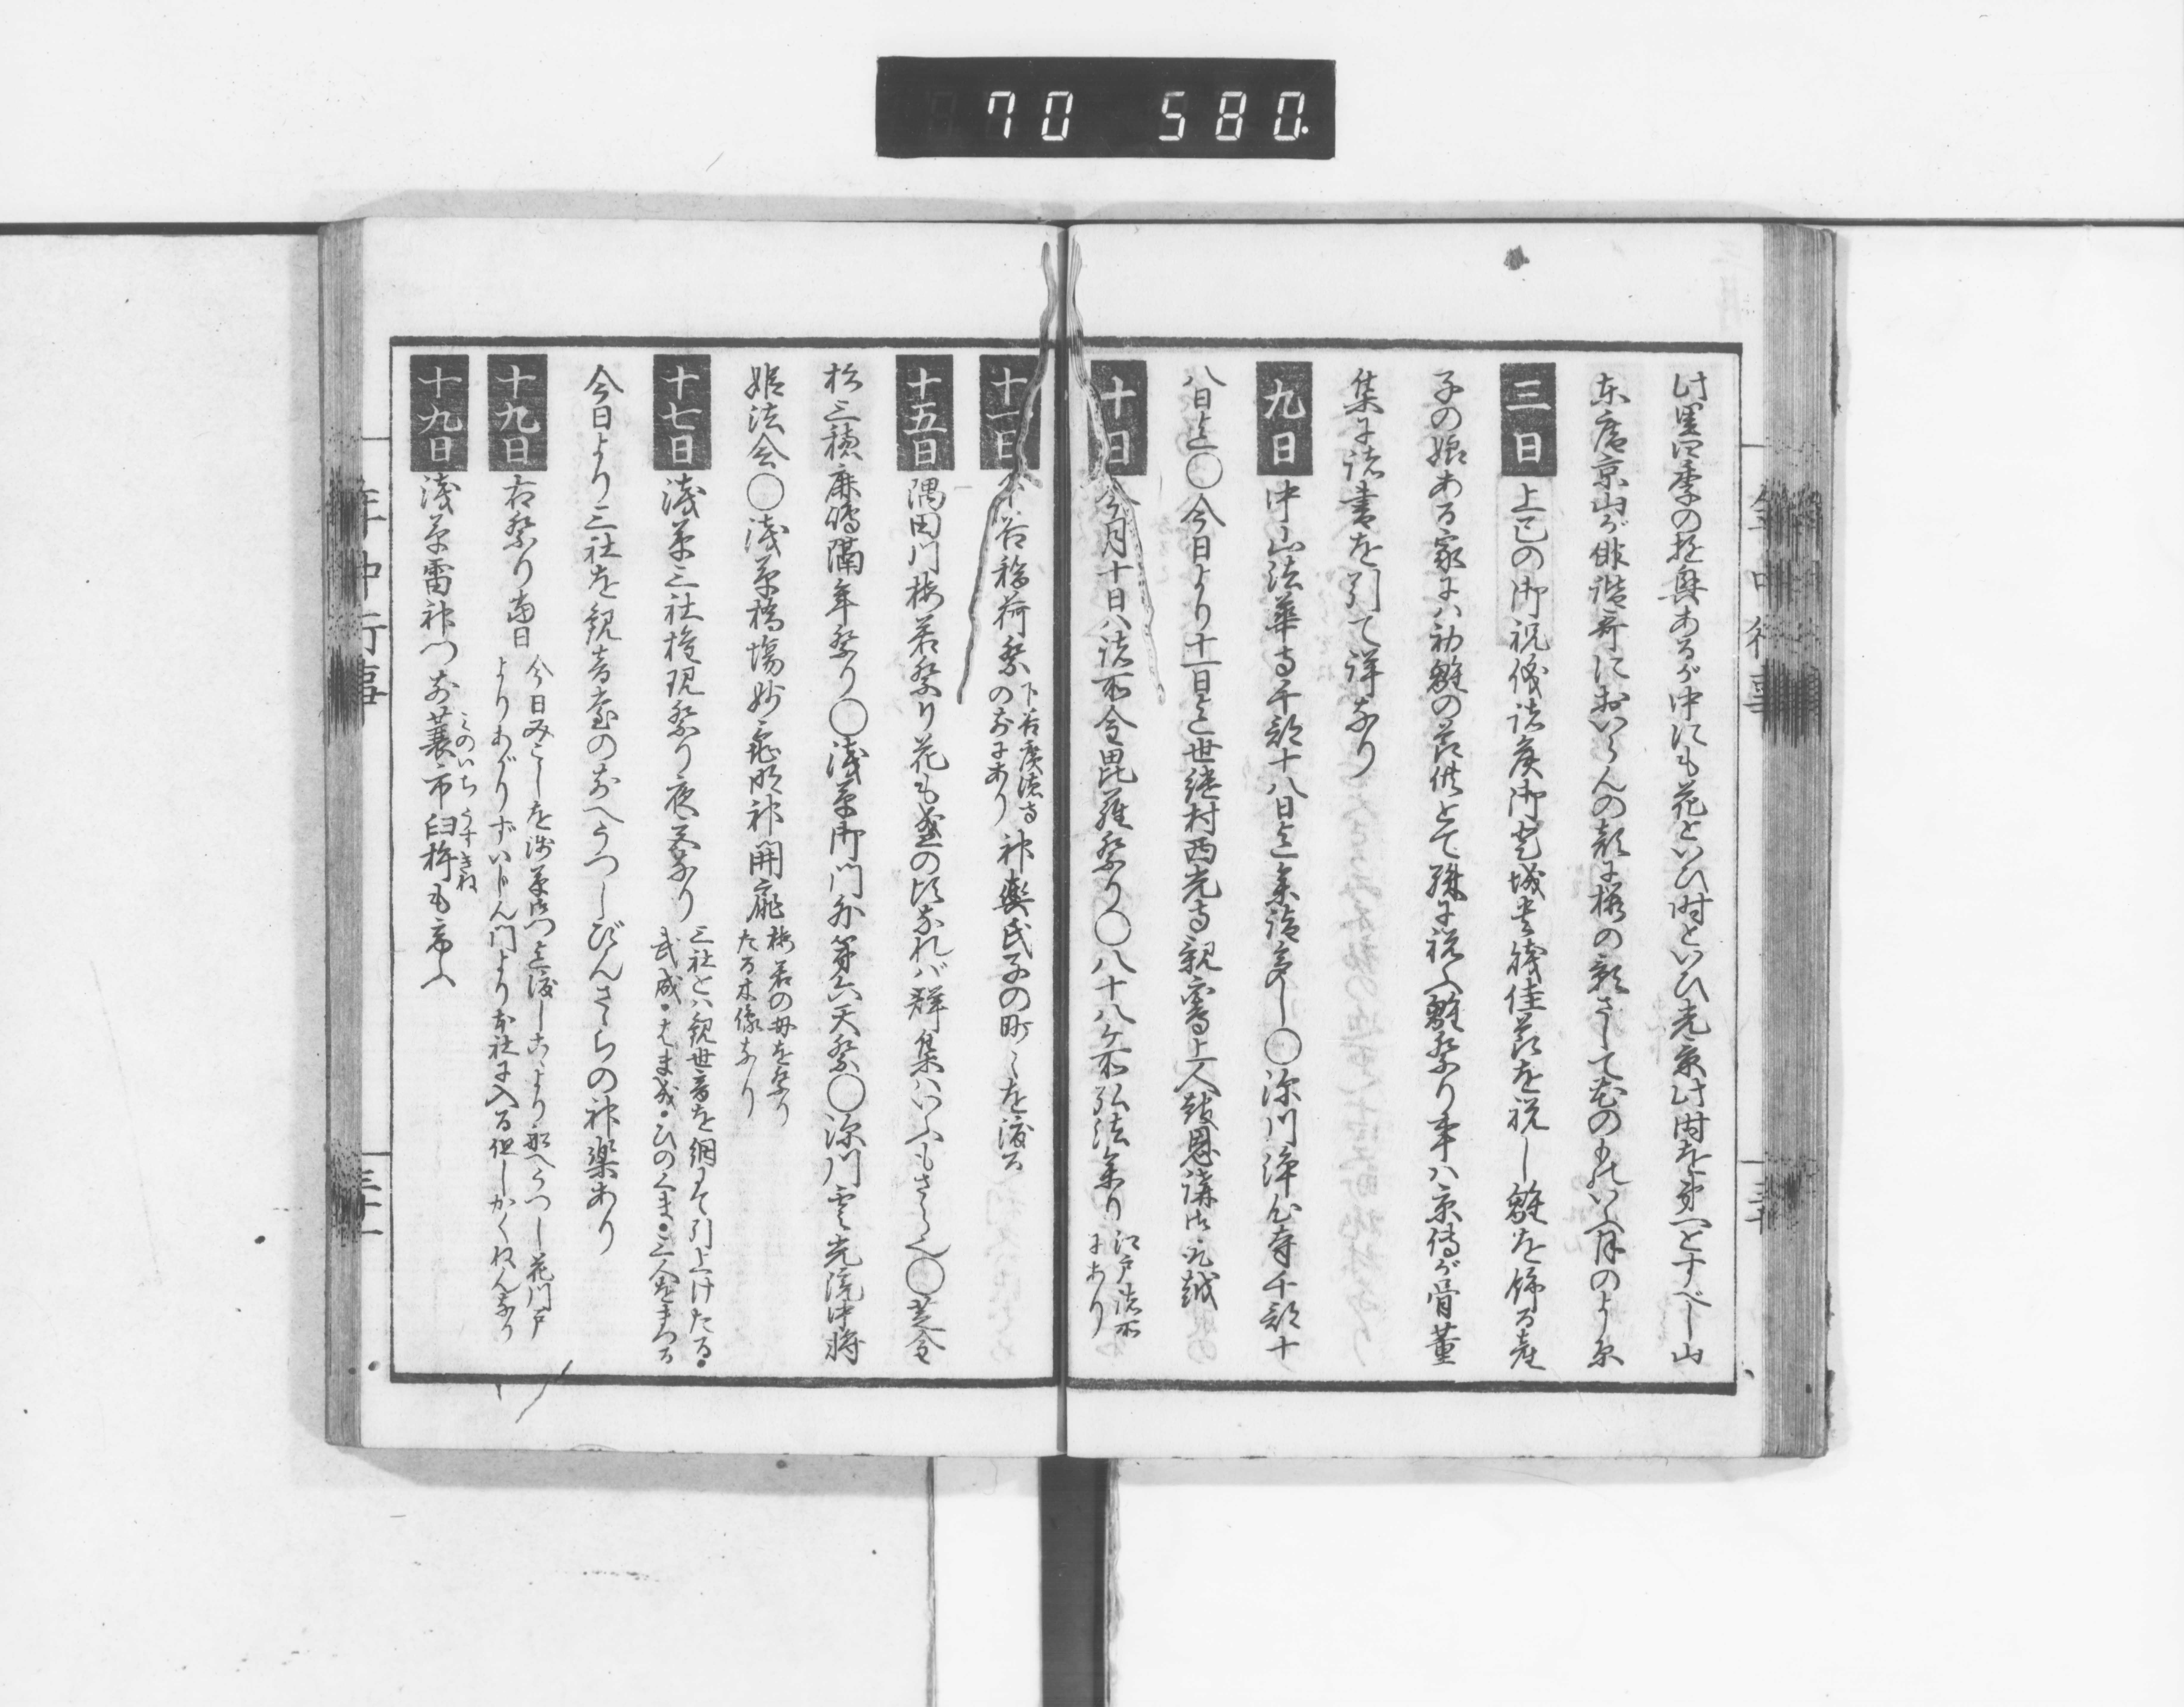 70 580
此里四季の遊興あるが中にも花といひ時といひ光景此時を第一とすべし山
東庵京山が俳諧哥においらんの顔に桜の影さして花のもいく月のよし原
三日 上巳の御祝儀諸侯御登城貴賤佳節を祝し雛を飾る産
子の娘ある家には初雛の節供とて殊に祝ふ雛祭り事は京傳が骨董
集に諸書を引て詳なり
九日 中山法華寺千部十八日迄参詣多し○深川浄心寺千部十
八日迄○今日より十一日迄世継村西光寺親鸞上人報恩講
十日 今月十日は諸所金毘羅祭り○八十八ケ所弘法参り 江戸諸所
にあり
十一日 谷稲荷祭 下谷廣徳寺
の前にあり 神輿氏子の町々を渡る
十五日 隅田川梅若祭り花も盛の頃なれば群集はいふもさら也○芝金
杉三穂廉嶋隔年祭り○浅草御門外第六天祭○深川霊光院中将
姫法会○浅草橋場妙亀明神開扉 梅若の母を祭り
たる木像なり
十七日 浅草三社権現祭り夜宮なり 三社とは観世音を網にて引上けたる・
武成・はま成・ひのくま・三人をまつる
今日より三社を観音堂の前へうつしびんざゝらの神楽あり
十九日 右祭り当日 今日みこしを浅草御門迄渡しこゝより船へうつし花川戸
よりあがりずいじん門より本社に入る但しかくねんなり
十九日 浅草雷神門前蓑市臼杵も商ふ
みのいち うすきね
年中行事 三十
年中行事 三十一